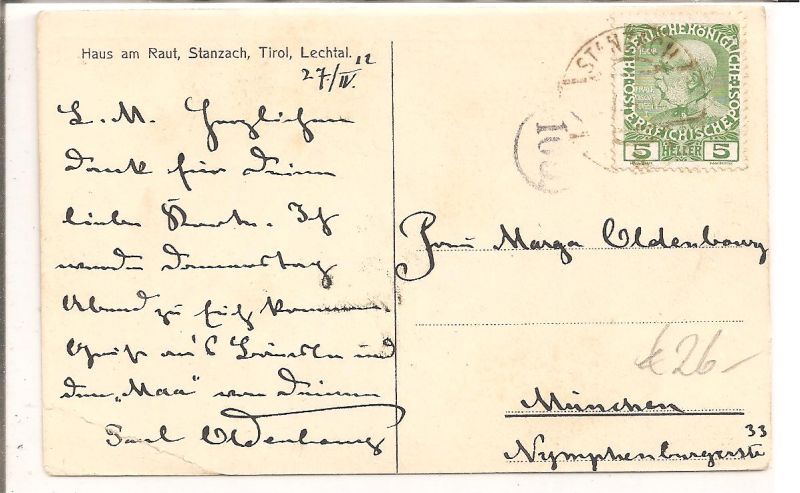 Haus am Raut, Stanzach, Tirol, Lechtal.
27./IV. 12
L. M. Herzlichen
Dank für Deine
liebe Karte. Ich
werde Donnerstag
Abend zu Euch kommen.
Grüße aus und
den „Maa“ von Deinem
Paul Oldenbourg
STANZACH
KAISERLICHE KÖNIGLICHE
ÖSTERREICHISCHE POST
5 HELLER 5
Frau Marga Oldenbourg
München
Nymphenburgerstr
33
€ 26-